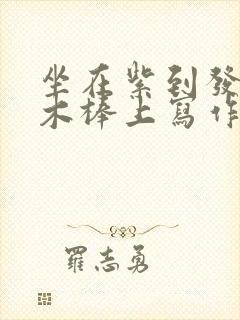 坐在紫到發
木棒上寫作
羅志勇